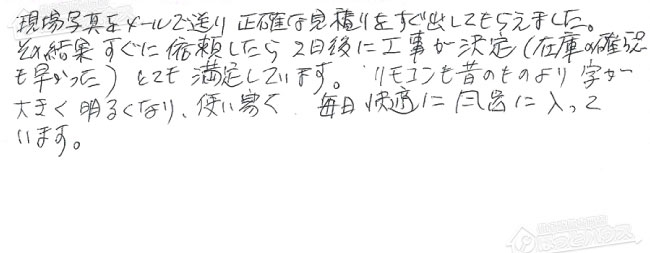 現場写真をメールで送り正確な見積りをすぐ出してもらえました。
その結果すぐに依頼したら2日後に工事が決定(在庫の確認
も早かった)とても満足しています。リモコンも昔のものより字が
大きく明るくなり、使い易く 毎日快適に風呂に入って
います。